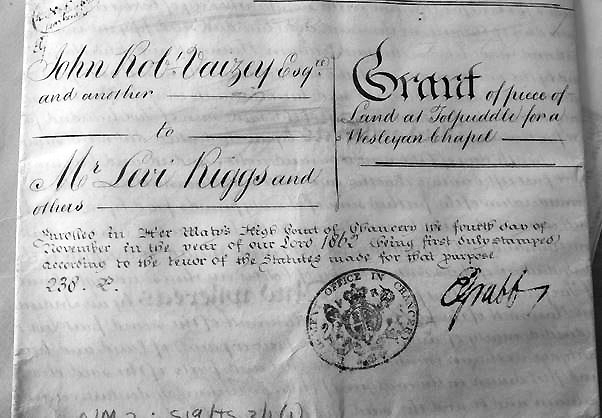 John Rob.t Vaizey Esq.re
and another
to
Mr Levi Riggs and
others
Grant of piece of
Land at Tolpuddle for a
Wesleyan Chapel
Enrolled in Her Maty's High Court of Chancery the fourth day of
November in the year of our Lord 1862 (being first duly stamped)
according to the tenor of the Statutes made for that purpose
OFFICE IN CHANCERY